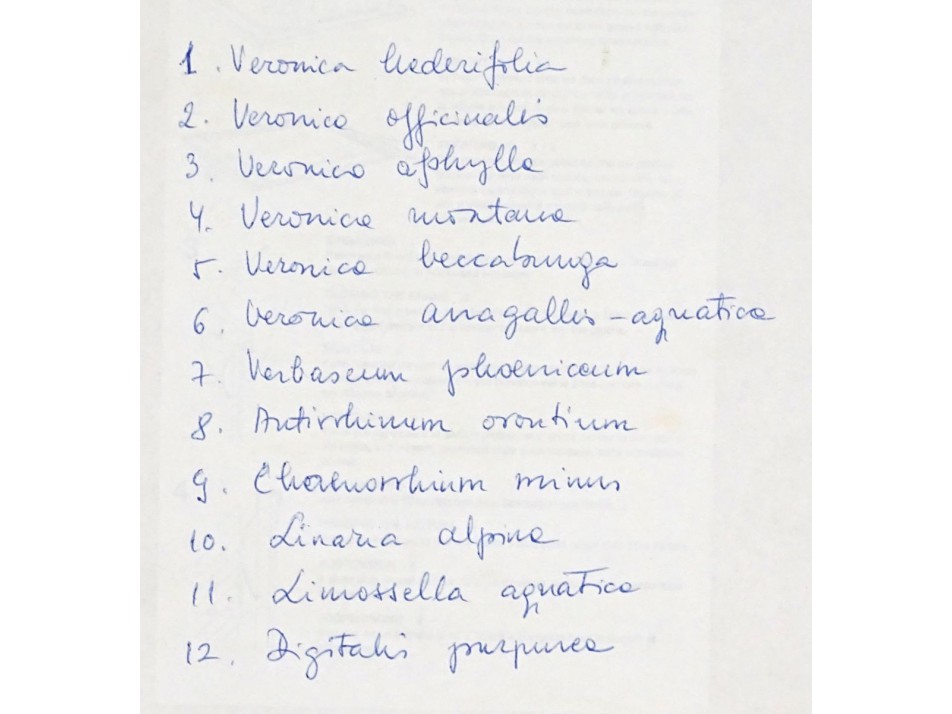 1. Veronica hederifolia
2. Veronica officinalis
3. Veronica aphylla
4. Veronica montana
5. Veronica beccabunga
6. Veronica anagallis-aquatica
7. Verbascum phoeniceum
8. Antirrhinum orontium
9. Chaenorrhium minus
10. Linaria alpina
11. Limossella aquatica
12. Digitalis purpurea